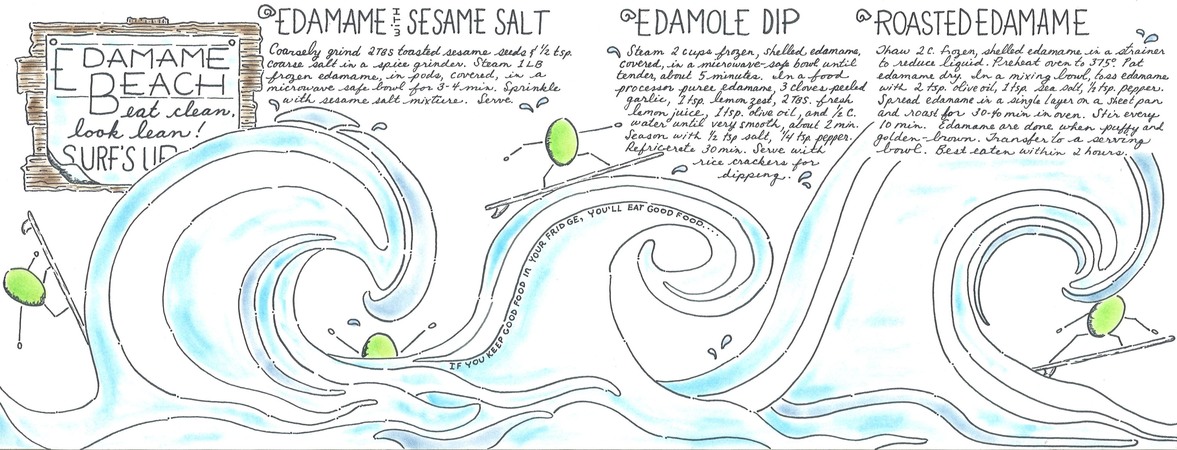 EDAMAME
BEACH
Eat clean,
look lean!
SURF'S UP
EDAMAME WITH SESAME SALT
Coarsely grind 2 TBS toasted sesame seeds & 1/2 tsp.
coarse salt in a spice grinder. Steam 1 LB
frozen edamame, in pods, covered, in a
microwave safe bowl for 3-4 min. Sprinkle
with sesame salt mixture. Serve.
EDAMOLE DIP
Steam 2 cups frozen, shelled edamame,
covered, in a microwave-safe bowl until
tender, about 5 minutes. In a food
processor puree edamame, 3 cloves peeled
garlic, 1 tsp. lemon zest, 2 TBS. fresh
lemon juice, 1 tsp. olive oil, and 1/2 C.
water until very smooth, about 2 min.
Season with 1/2 tsp salt, 1/4 tsp pepper.
Refrigerate 30 min. Serve with
rice crackers for
dipping.
ROASTED EDAMAME
Thaw 2 C. frozen, shelled edamame in a strainer
to reduce liquid. Preheat oven to 375°. Pat
edamame dry. In a mixing bowl, toss edamame
with 2 tsp. olive oil, 1 tsp. sea salt, 1/2 tsp. pepper.
Spread edamame in a single layer on a sheet pan
and roast for 30-40 min in oven. Stir every
10 min. Edamame are done when puffy and
golden-brown. Transfer to a serving
bowl. Best eaten within 2 hours.
IF YOU KEEP GOOD FOOD IN YOUR FRIDGE, YOU'LL EAT GOOD FOOD....